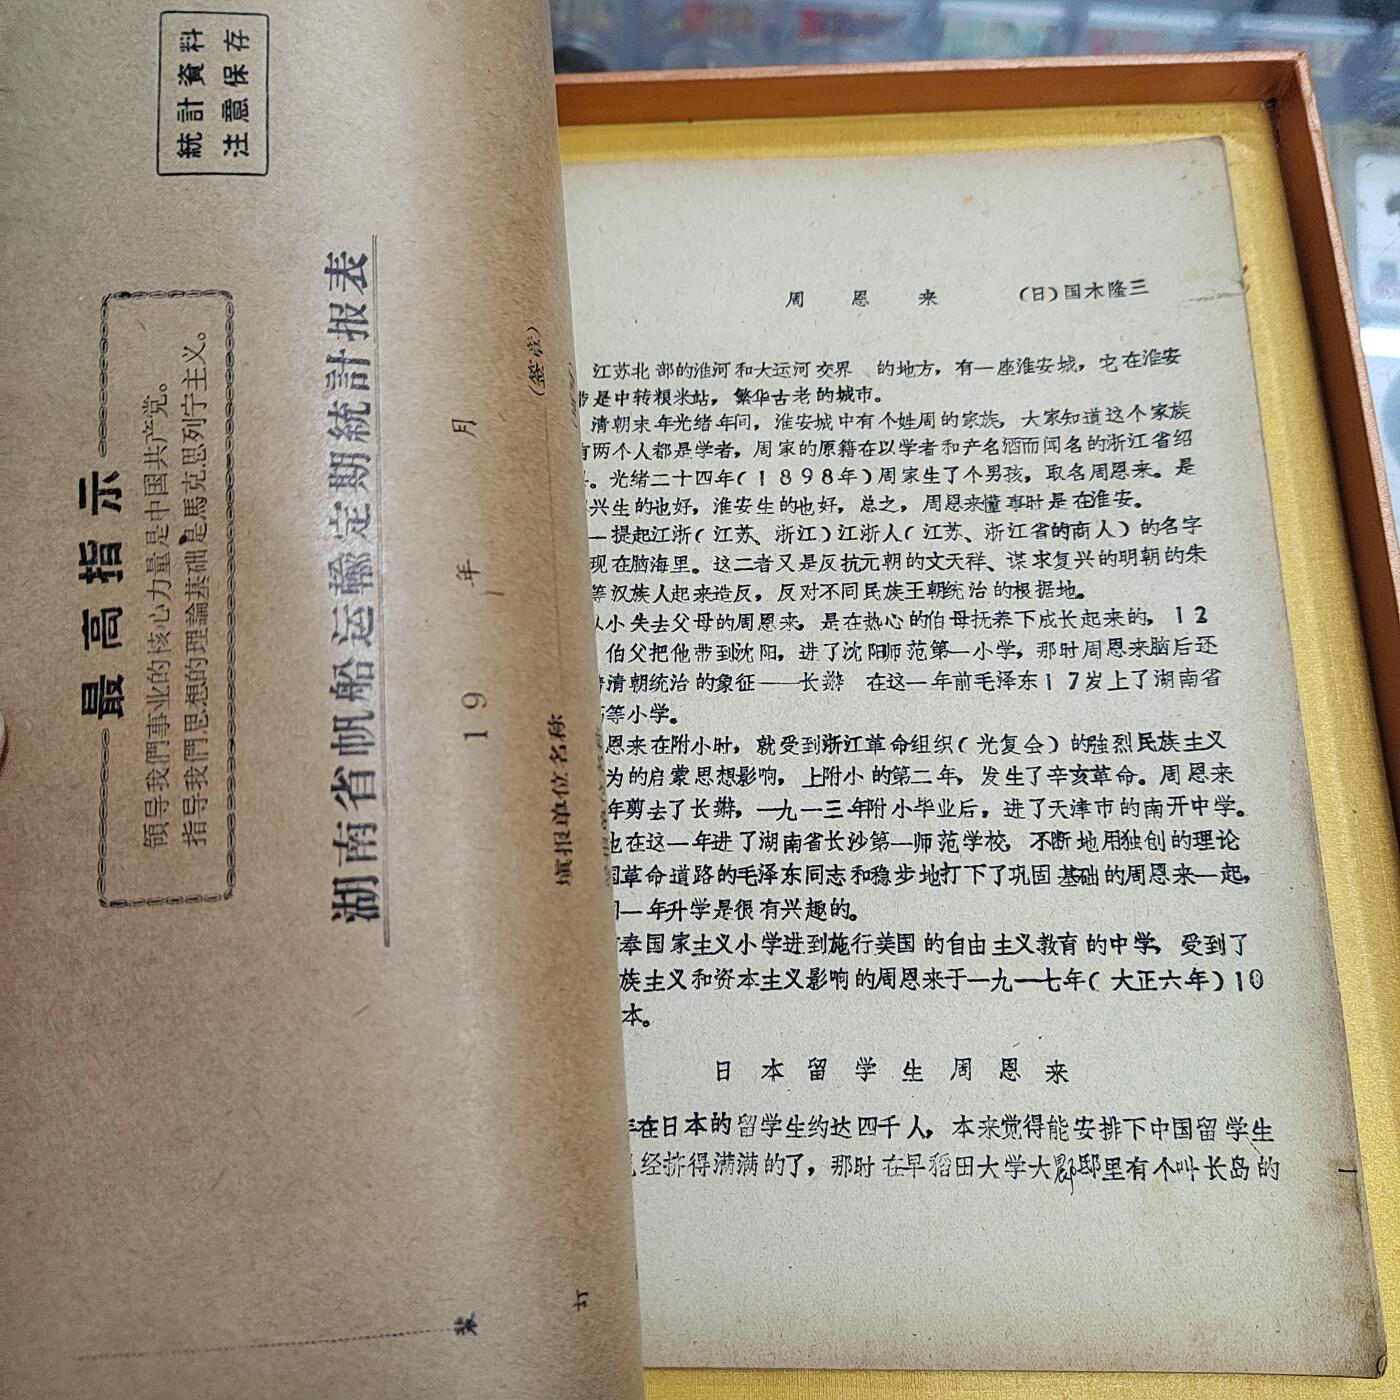 統計資料
注意保存
最高指示
領导我們事业的核心力量是中国共产党。
指导我們思想的理論基础是馬克思列宁主义。
湖南省帆船运輸定期統計报表
19 年 月
填报单位名称
(签章)
装
訂
周恩来 (日)国木隆三
江苏北部的淮河和大运河交界 的地方，有一座淮安城，它在淮安
是中转粮米站，繁华古老的城市。
清朝末年光绪年间，淮安城中有个姓周的家族，大家知道这个家族
有两个人都是学者，周家的原籍在以学者和产名酒而闻名的浙江省绍
。光绪二十四年(1898年)周家生了个男孩，取名周恩来。是
兴生的也好，淮安生的也好，总之，周恩来懂事时是在淮安。
一提起江浙(江苏、浙江)江浙人(江苏、浙江省的商人)的名字
现在脑海里。这二者又是反抗元朝的文天祥、谋求复兴的明朝的朱
等汉族人起来造反，反对不同民族王朝统治的根据地。
从小失去父母的周恩来，是在热心的伯母抚养下成长起来的，12
伯父把他带到沈阳，进了沈阳师范第一小学，那时周恩来脑后还
清朝统治的象征——长辫 在这一年前毛泽东17岁上了湖南省
等小学。
恩来在附小时，就受到浙江革命组织(光复会)的強烈民族主义
为的启蒙思想影响，上附小的第二年，发生了辛亥革命。周恩来
年剪去了长辫，一九一三年附小毕业后，进了天津市的南开中学。
也在这一年进了湖南省长沙第一师范学校，不断地用独创的理论
国革命道路的毛泽东同志和稳步地打下了巩固基础的周恩来一起，
同一年升学是很有兴趣的。
奉国家主义小学进到施行美国的自由主义教育的中学，受到了
族主义和资本主义影响的周恩来于一九一七年(大正六年)10
本。
日本留学生周恩来
年在日本的留学生约达四千人，本来觉得能安排下中国留学生
经挤得满满的了，那时在早稻田大学大 邸里有个叫长岛的